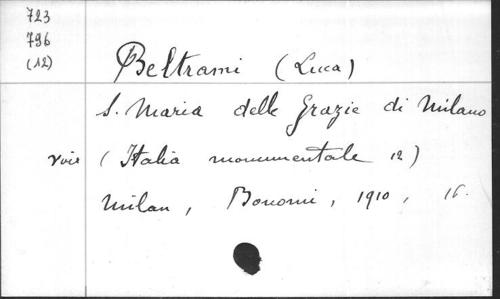 723
796
(12)
Beltrami (Luca)
S. Maria delle Grazie di Milano
voir (Italia monumentale 12)
Milan, Bonomi, 1910, 16.